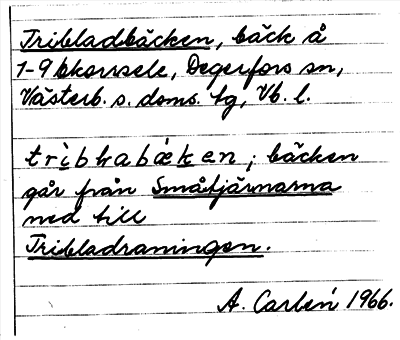 Tribladbäcken, bäck å
1-9 Ekorrsele, Degerfors sn,
Västerb. s. doms. tg, Vb. l.
bäcken
går från Småtjärnarna
ned till
Tribladraningen.
A. Carlén 1966.